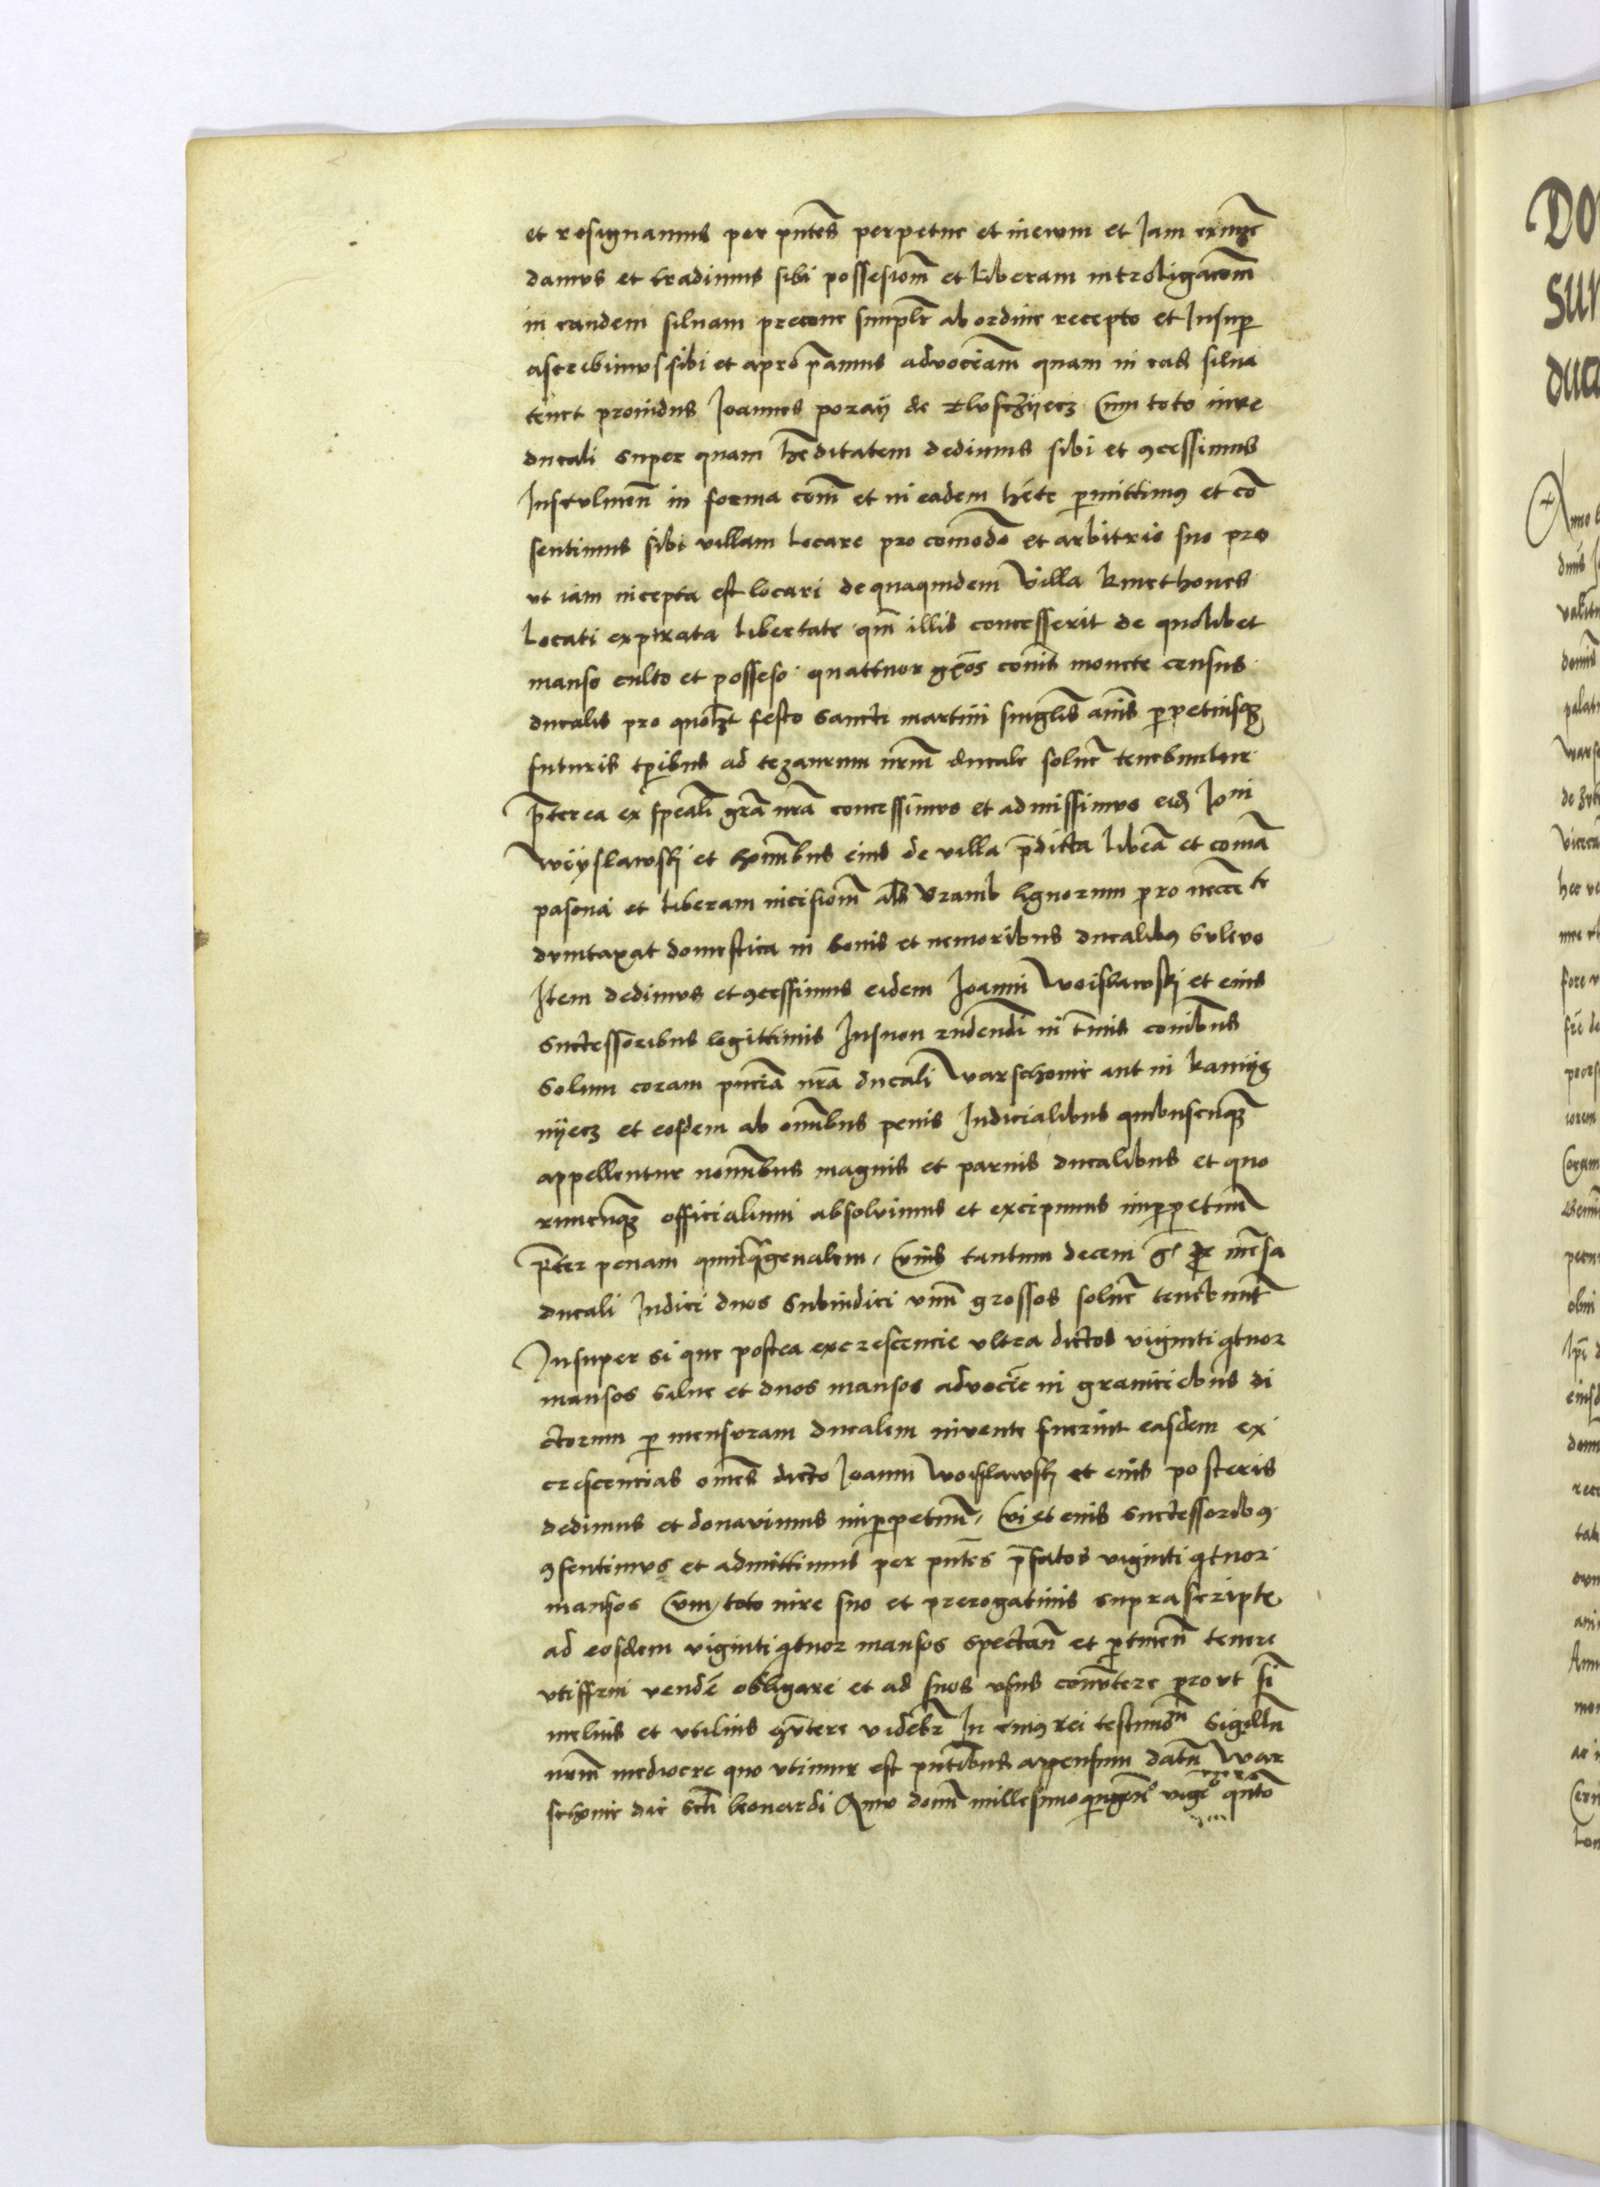 et resignamus per pñtes perpetue et inewm et Jam
damus et tradimus sibi possesiom̃ et liberam introligacom̃
in eandem siluam precone simpl̃r ab ordine recepto et Insup̱
ascribimus sibi et apropr̃amus advocciam̃ quam in ead̃ silua
tenet prouidus Joannes poray de Cum toto iure
ducali super quam hẽditatem dedimus sibi et ꝯcessimus
in forma com̃ et in eadem hẽte p̱mittimꝰ et cõ
sentimus sibi villam locare pro comodo et arbitrio suo pro
vt iam incepta est locari de quaquidem Villa kmethones
Locati expirata libertate qm̃ illis concesserit de quolibet
manso culto et possesso quattuor grõs com̃is monete census
ducalis pro quolꝫt festo sancti martini singlis an̄is p̱petuisqꝫ
futuris tp̱ibus ad tezaurum nrm̃ ducale solue͂ tenebuntur
P̃terea ex speali grã nrã concessimus et admissimus eid̃ Joni
Woyslawskj et hom̃ibus eius de villa p̃dicta libeã et comã
pasona et liberam incisiom̃ als Vramb lignorum pro necce te
dumtaxat domestica in bonis et nemoribus ducalibꝰ
Item dedimus et ꝯcessimus eidem Joanni Woislawskj et eius
successoribus legittimis Jus non rñdendi in t̃mis com̃ibus
Solum coram pñcia nrã ducali Warschouie aut in kamyg
nyecz et eosdem ab om̃ibus penis Judicialibus quibuscuqꝫ
appellentur nom̃ibus magnis et paruis ducalibus et quo
rumcuqꝫ officialium absoluimus et excipimus imp̱petuum̃
P̃ter penam quinq̃genalem, Cuius tantum decem g̃ pro m̃esa
ducali Judici duos Subiudici vnũ grossos solue͂ tenebunt̃
Insuper si que postea excrescencie vltra dictos viginti q̃tuor
mansos silue et duos mansos advoccie in graniciebus di
ctorum p̱ mensuram ducalem invente fuerint easdem ex
crescencias om̃es dicto Joanni Woislawskj et eius posteris
dedimus et donavimus imp̱petuũ, Cui et eius successoribꝰ
ꝯsentimus et admittimus per pñtes p̃fatos viginti q̃tuor
mansos Cum toto iure suo et prerogatiuis suprascripte
ad eosdem viginti q̃tuor mansos spectan̄ et p̱tinen̄ tenere
vtifrui vendẽ obligare et ad suos vsus conũtere prout s̃i
melius et vtilius ꝯũtere videb̃r In cuiꝰ rei testimõn Sigillũ
nrm̃ mediocre quo vtimur est pñtibus appensum datũ War
schouie die sc̃ti leonardi Anno domĩ millesimo qu̱ngen̄o vigẽo qñto